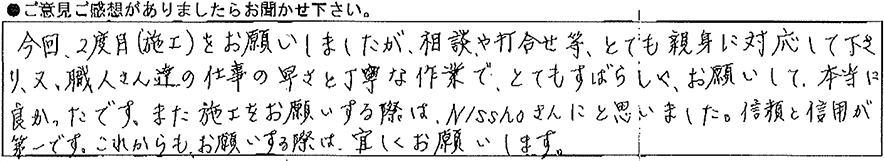 ●ご意見ご感想がありましたらお聞かせ下さい。
今回、2度目(施工)をお願いしましたが、相談や打合せ等、とても親身に対応して下さ
り、又、職人さん達の仕事の早さと丁寧な作業で、とてもすばらしく、お願いして、本当に
良かったです。また施工をお願いする際は、NISSHOさんにと思いました。信頼と信用が
第一です。これからも、お願いする際は、宜しくお願いします。